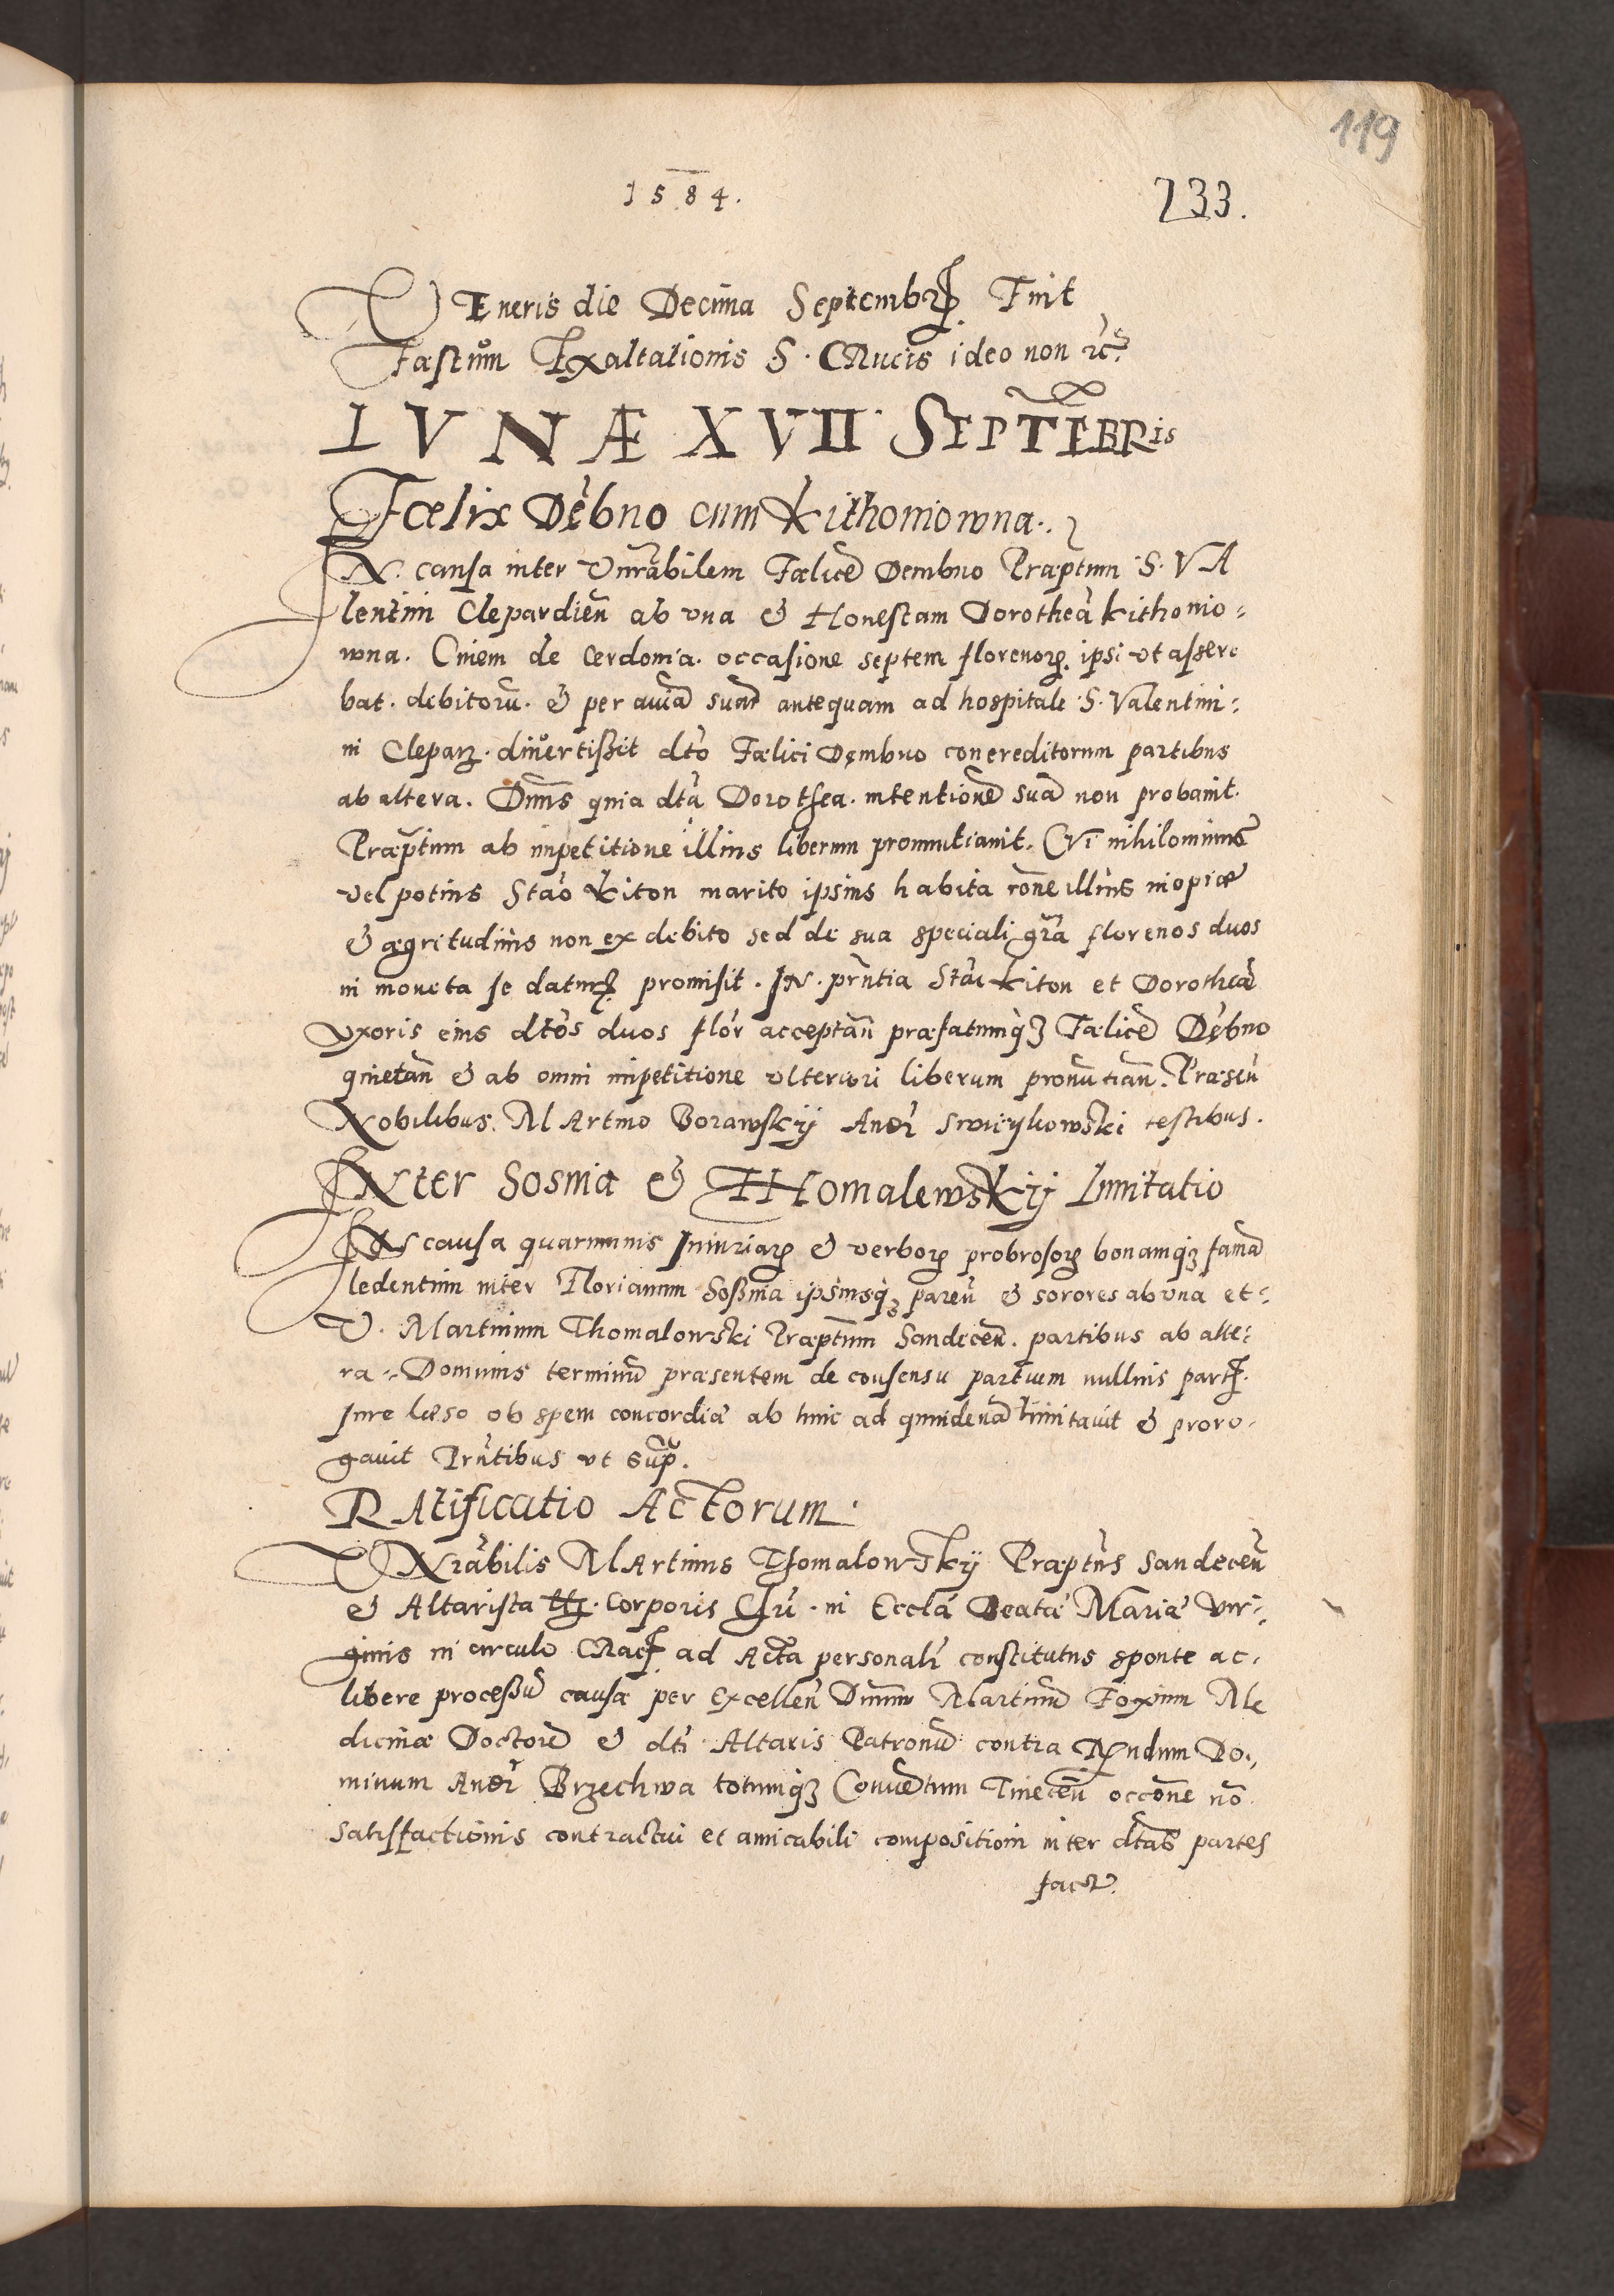 119
1584.
233.
VEneris die Decima Septembrꝭ Fuit
Fæstum Exaltationis S. CRucis ideo non etc.
LVNÆ XVII SEPTEBRis
Fœlix Dębno cum Kithoniowna.
IN causa inter Vnrabilem Fœlice Dembno Præptum S. VA
lentini Clepardien ab vna & Honestam Dorothea Kithonio=
wna. Ciuem de Cerdonia. occasione septem florenoꝝ ipsi vt assere
bat. debitoru. & per auia sua antequam ad hospitale S. Valentini=
in Clepaꝝ. diuertißit dto Fælici Dęmbno concreditorum partibus
ab altera. Dnus quia dta Dorothea. intentione sua non probauit.
Præptum ab impetitione illius liberum pronuntiauit. CVi nihilominus
vel potius Stao Kiton marito ipsius habita rone illius inopiæ
& ægritudinis non ex debito sed de sua speciali gra florenos duos
in moneta se datuꝝ promisit. IN. prntia Stai Kiton et Dorothea
Vxoris eius dtos duos flor acceptan præfatumqꝫ Fælice Dębno
quietan & ab omni impetitione vlteriori liberum pronutian. Præsen
Nobilibus. MArtino Borawskÿ Andr testibus.
INter Sosnia & THomalewskÿ Limitatio
IN causa quarumuis Iniuriaꝝ & verboꝝ probrosoꝝ bonamqꝫ fama
ledentium inter Florianum Soßnia ipsiusqꝫ paren & sorores ab vna et=
V. Martinum Thomalowski Præptum Sandecen. partibus ab alte=
ra= Dominus terminu præsentem de consensu partium nullius partꝭ.
Iure læso ob spem concordiæ ab hinc ad quindena limitauit & proro=
gauit Prntibus vt sup.
RAtificatio ACtorum.
VNrabilis MArtinus Thomalowskÿ Præptus Sandecen
& Altarista ttꝭ. Corporis Chri. in Eccla Beatæ Mariæ Vir=
ginis in circulo CRacꝭ ad Acta personalr constitutus sponte ac=
libere proceßu causæ per Excellen Dnum Martinu Foxium Me
dicinæ Doctore & dti Altaris Patronu contra Rndum Do=
minum Andr Brzechwa totumqꝫ Conuetum Tinecen occone no
satisfactionis contractui et amicabili compositioni inter dtas partes
factæ.